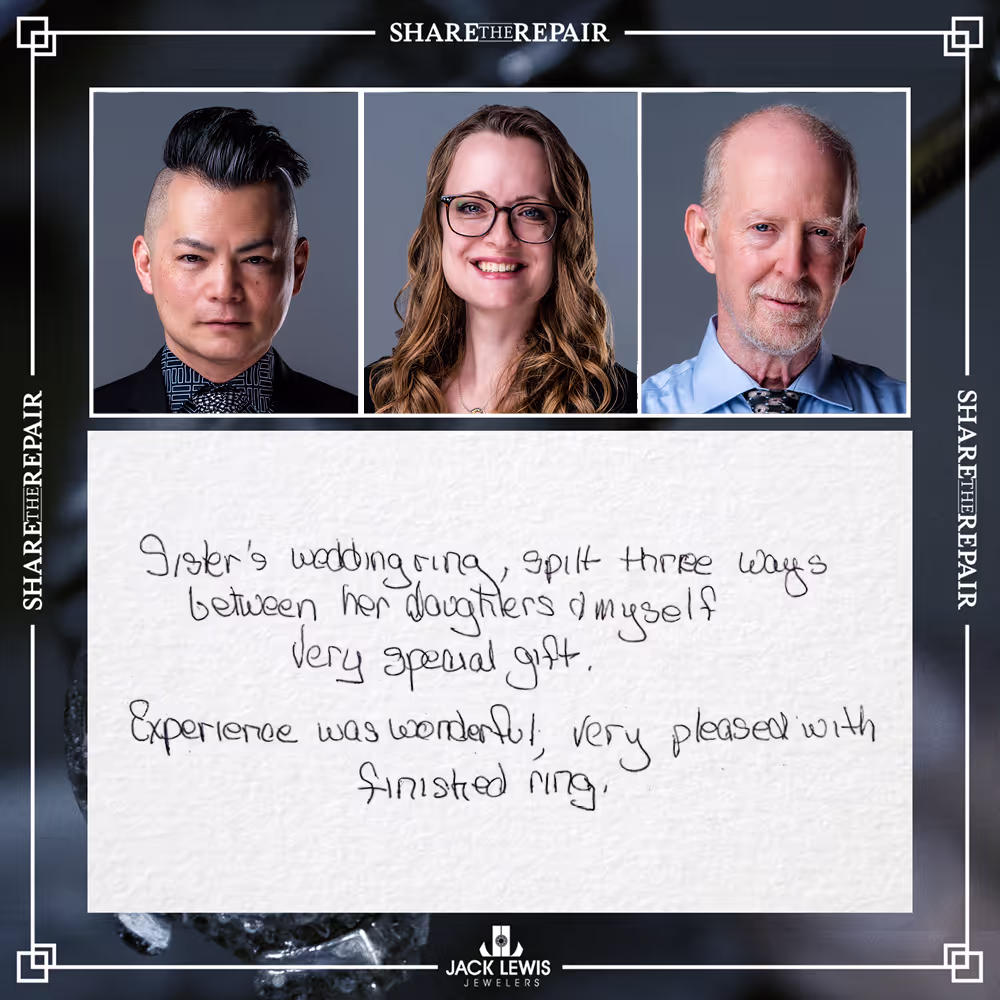 SHARETHEREPAIR
SHARETHEREPAIR
SHARETHEREPAIR
Sister's wedding ring, spilt three ways
between her daughters & myself
Very special gift.
Experience was wonderful, very pleased with
finished ring.
JACK LEWIS
JEWELERS